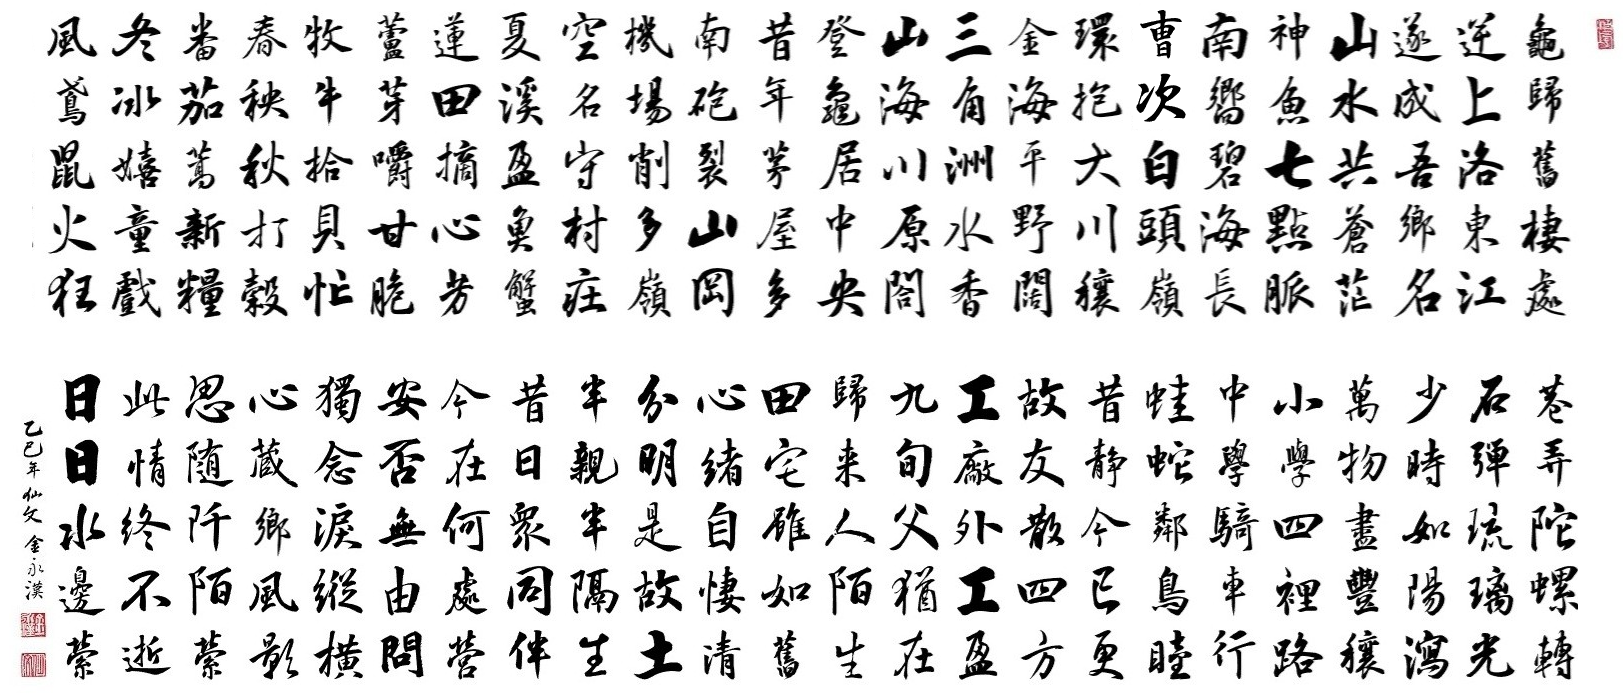 龜歸舊棲處
逆上洛東江
遂成吾鄉名
山水共蒼茫
神魚七點脈
南嚮碧海長
曹次白頭嶺
環抱大川穰
金海平野闊
三角洲水香
山海川原閤
登龜居中央
昔年茅屋多
南砲裂山岡
機場削多嶺
空名守村庄
夏溪盈魚蟹
蓮田摘心芳
蘆芽嚼甘脆
牧牛拾貝忙
春秧秋打穀
番茄蒿新糧
冬冰嬉童戲
風鳶鼠火狂
巷弄陀螺轉
石彈琉璃光
少時如陽瀉
萬物盡豐穰
小學四裡路
中學騎車行
蛙蛇鄰鳥睦
昔靜今已更
故友散四方
工廠外工盈
九旬父猶在
歸来人陌生
田宅雖如舊
心緒自悽清
分明是故土
半親半隔生
昔日眾同伴
今在何處營
安否無由問
獨念淚縱橫
心蔵鄉風影
思随阡陌縈
此情終不逝
日日水邊縈
乙巳年仙文金永漢